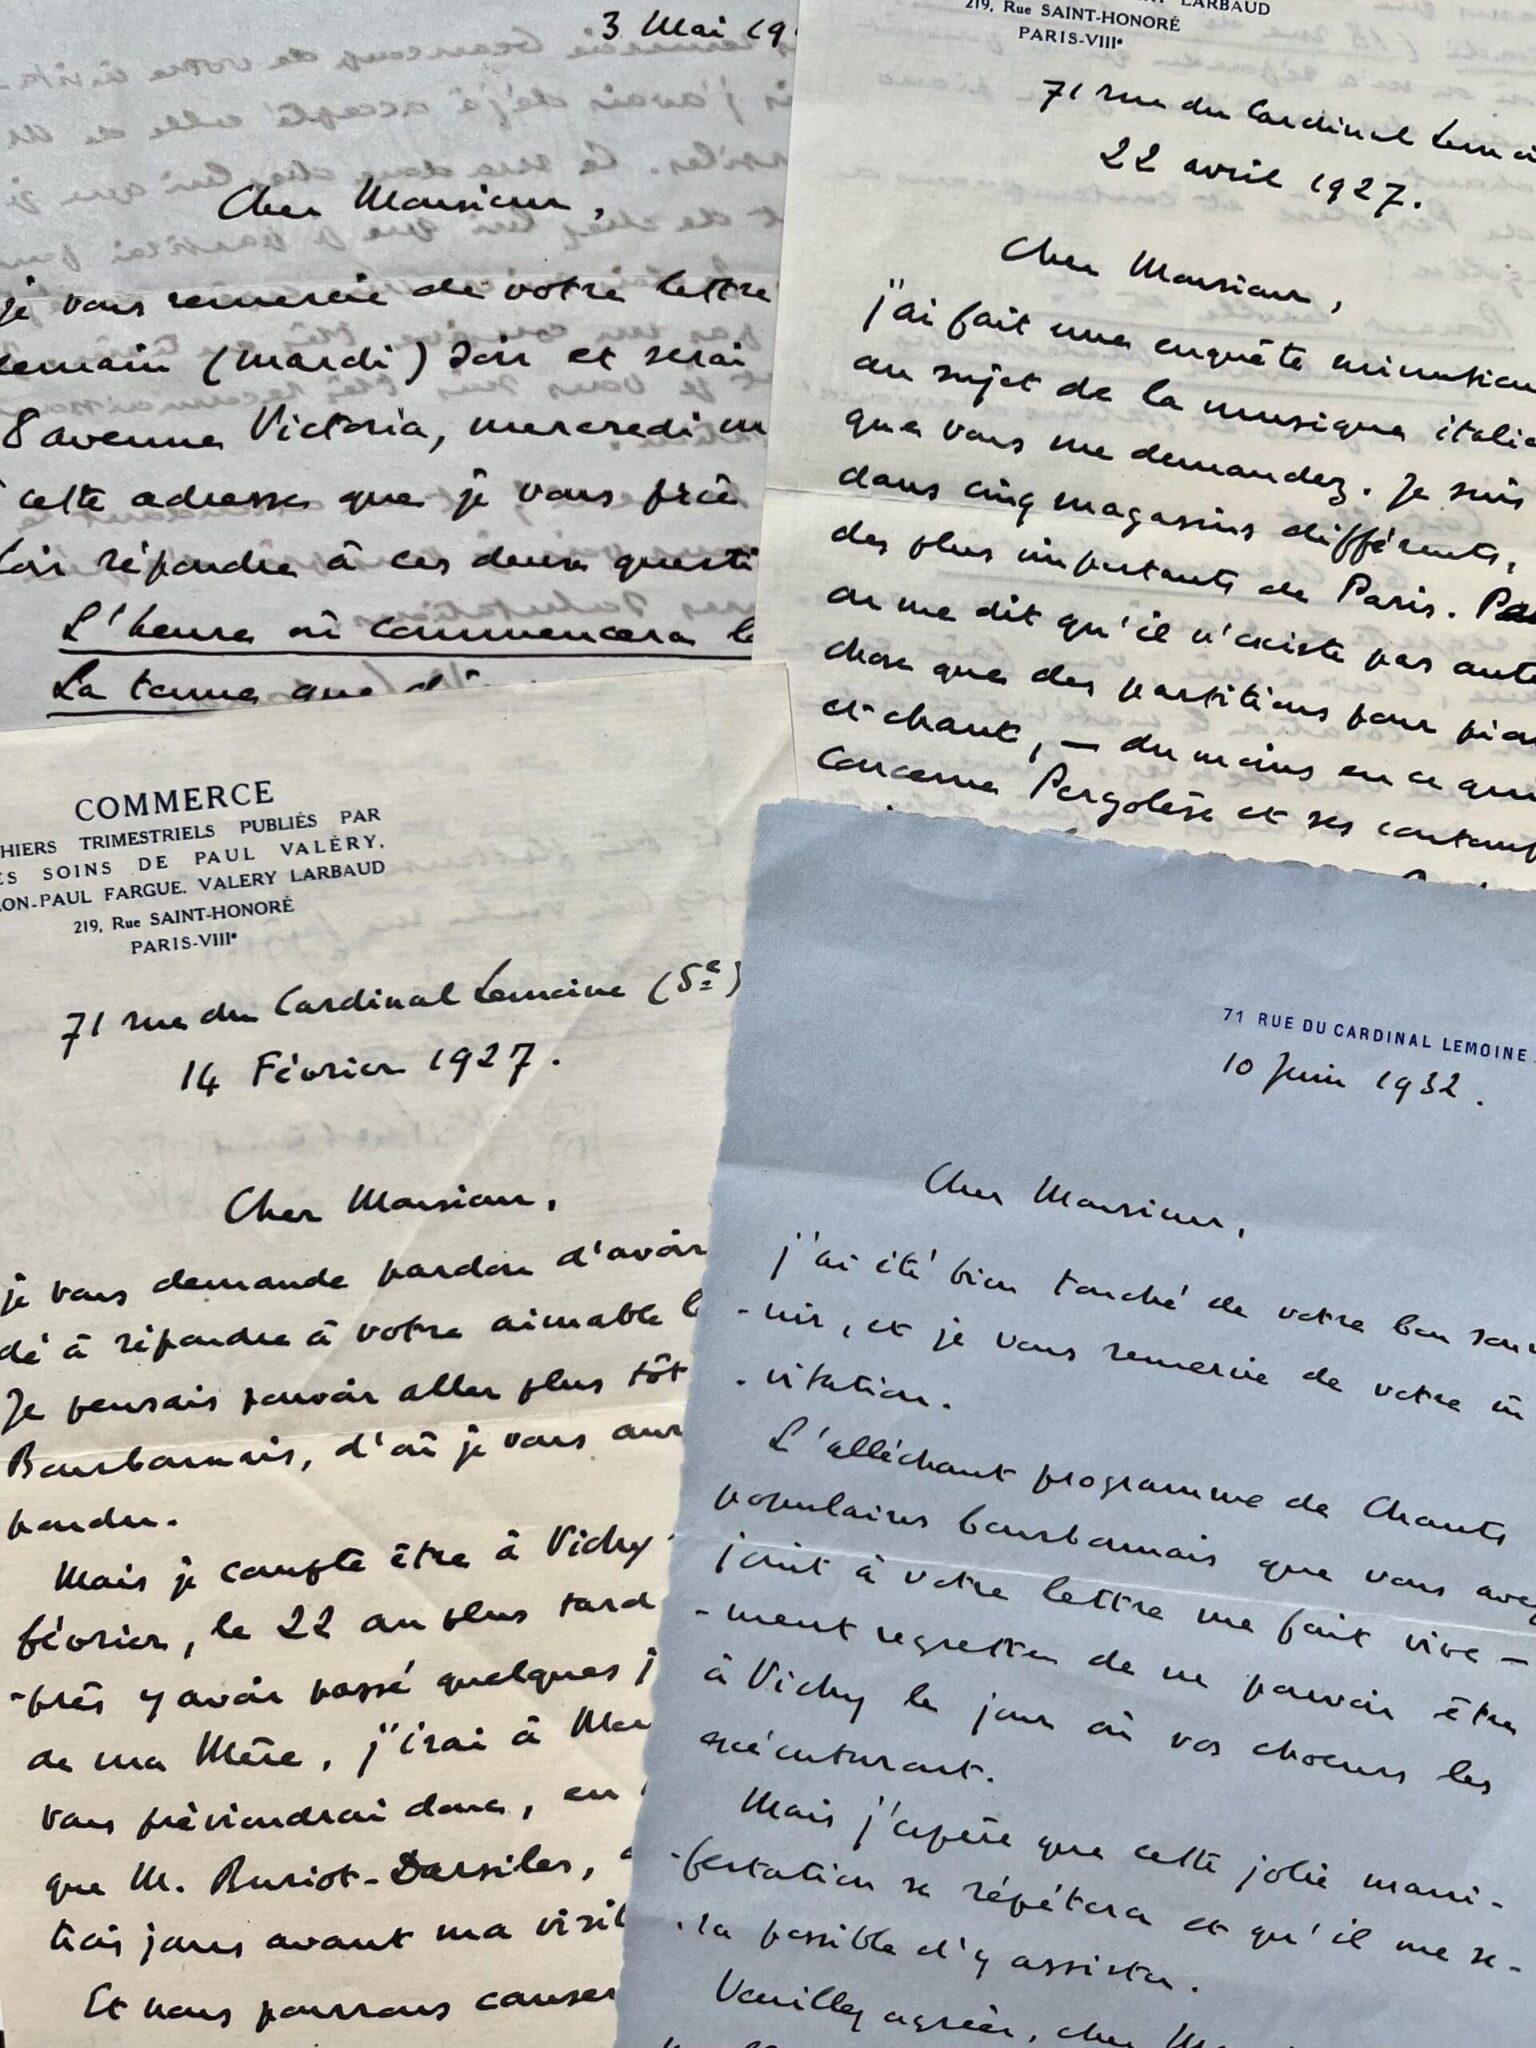 3 Mai 19
Cher Monsieur,
je vous remercie de votre lettre
demain (mardi) soir et serai
8 avenue Victoria, mercredi
cette adresse que je vous prie
répondre à ces deux questi
L'heure où commencera
La tenue que
LARBAUD
219, Rue SAINT-HONORÉ
PARIS-VIIIe
71 rue du Cardinal Lemoi
22 avril 1927.
Cher Monsieur,
j'ai fait une enquête minutieu
au sujet de la musique itali
que vous me demandez. Je suis
dans cinq magasins différents,
des plus importants de Paris.
on me dit qu'il n'existe pas aut
chose que des partitions pour pia
et chant, — du moins en ce qui
concerne Pergolèse et ses contem
COMMERCE
HIERS TRIMESTRIELS PUBLIÉS PAR
ES SOINS DE PAUL VALÉRY,
ON-PAUL FARGUE, VALERY LARBAUD
219, Rue SAINT-HONORÉ
PARIS-VIIIe
71 rue du Cardinal Lemoine (5e)
14 Février 1927.
Cher Monsieur,
je vous demande pardon d'avoir
dé à répondre à votre aimable l
Je pensais pouvoir aller plus tôt
Bourbonnais, d'où je vous aur
pondu.
Mais je compte être à Vichy
février, le 22 au plus tard
-près y avoir passé quelques j
de ma Mère, j'irai à
vous préviendrai donc, en
que M. Buriot-Darsiles,
trois jours avant ma visit
Et nous pourrons causer
71 RUE DU CARDINAL LEMOINE
10 Juin 1932.
Cher Monsieur,
j'ai été bien touché de votre bon souv
-nir, et je vous remercie de votre in
-vitation.
L'alléchant programme de Chants
populaires bourbonnais que vous avez
joint à votre lettre me fait vive-
-ment regretter de ne pouvoir être
à Vichy le jour où vos choeurs les
exécuteront.
Mais j'espère que cette jolie mani-
-festation se répétera et qu'il me se-
-ra possible d'y assister.
Veuillez agréer, cher